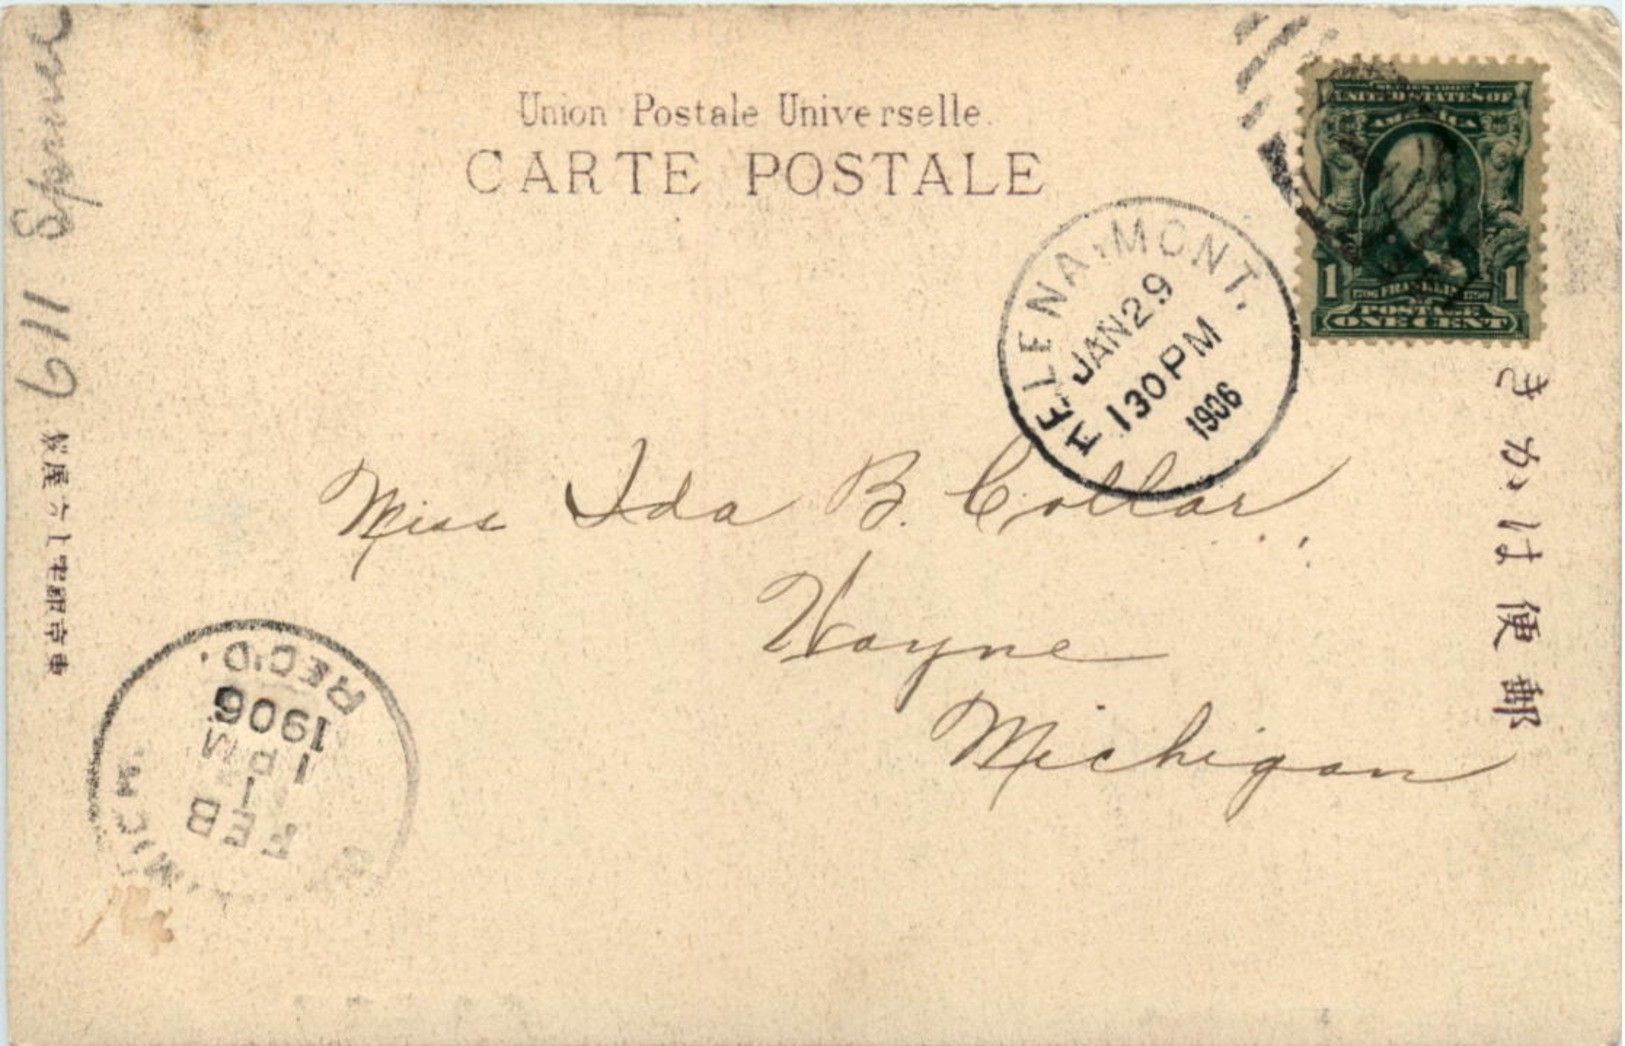 Union Postale Universelle.
CARTE POSTALE
UNITED STATES OF
AMERICA
1 FRANKLIN 1
POSTAGE
ONE CENT
HELENA, MONT.
JAN 29
130 PM
1906
きかは便郵
Miss Ida B. Collar
Wayne
Michigan
611 Spruce
MICH.
FEB
1
1 PM
1906
REC'D.